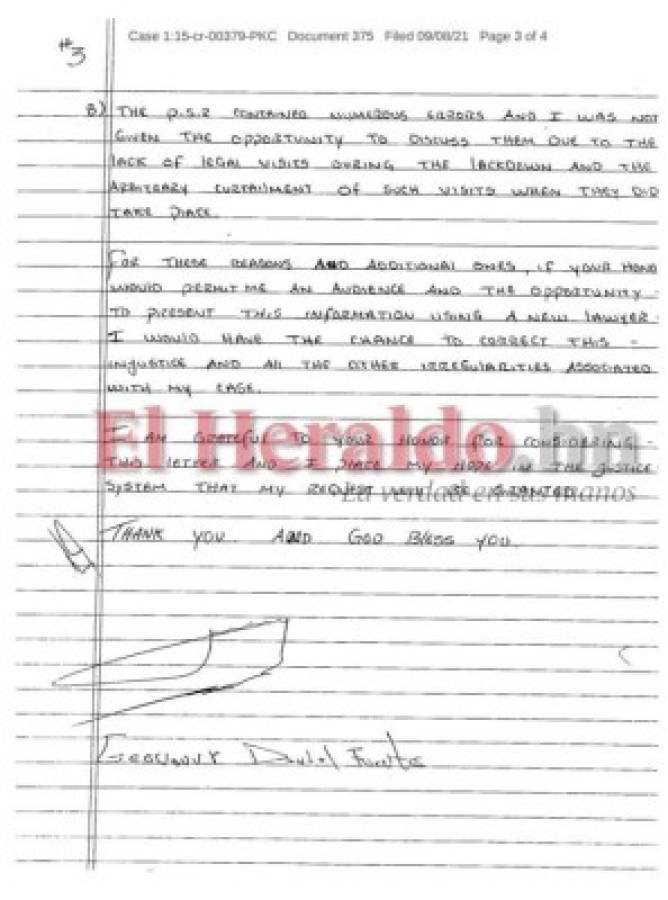 Case 1:15-cr-00379-PKC Document 375 Filed 09/08/21 Page 3 of 4
#3
8) THE P.S.R CONTAINED NUMEROUS ERRORS AND I WAS NOT
GIVEN THE OPPORTUNITY TO DISCUSS THEM DUE TO THE
LACK OF LEGAL VISITS DURING THE LOCKDOWN AND THE
ARBITRARY CURTAILMENT OF SUCH VISITS WHEN THEY DID
TAKE PLACE.
FOR THESE REASONS AND ADDITIONAL ONES, IF YOUR HONO
WOULD PERMIT ME AN AUDIENCE AND THE OPPORTUNITY
TO PRESENT THIS INFORMATION USING A NEW LAWYER.
I WOULD HAVE THE CHANCE TO CORRECT THIS
INJUSTICE AND All THE OTHER IRREGULARITIES ASSOCIATED
WITH MY CASE.
El Heraldo.hn
I AM GRATEFUL TO YOUR HONOR FOR CONSIDERING
THIS LETTER AND I PLACE MY HOPE IN THE JUSTICE
SYSTEM THAT MY REQUEST BE GRANTED
La verdad en sus manos
THANK YOU. AND GOD BLESS YOU.
Geovanny Daniel Fuentes